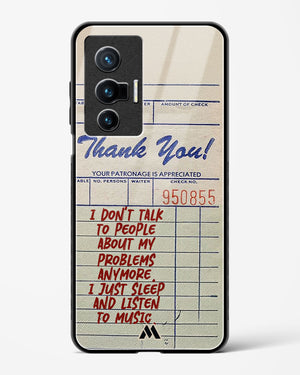 AMOUNT OF CHECK
Thank You!
YOUR PATRONAGE IS APPRECIATED
ABLE NO. PERSONS WAITER CHECK NO.
950855
I DON'T TALK
TO PEOPLE
ABOUT MY
PROBLEMS
ANYMORE.
I JUST SLEEP
AND LISTEN
TO MUSIC